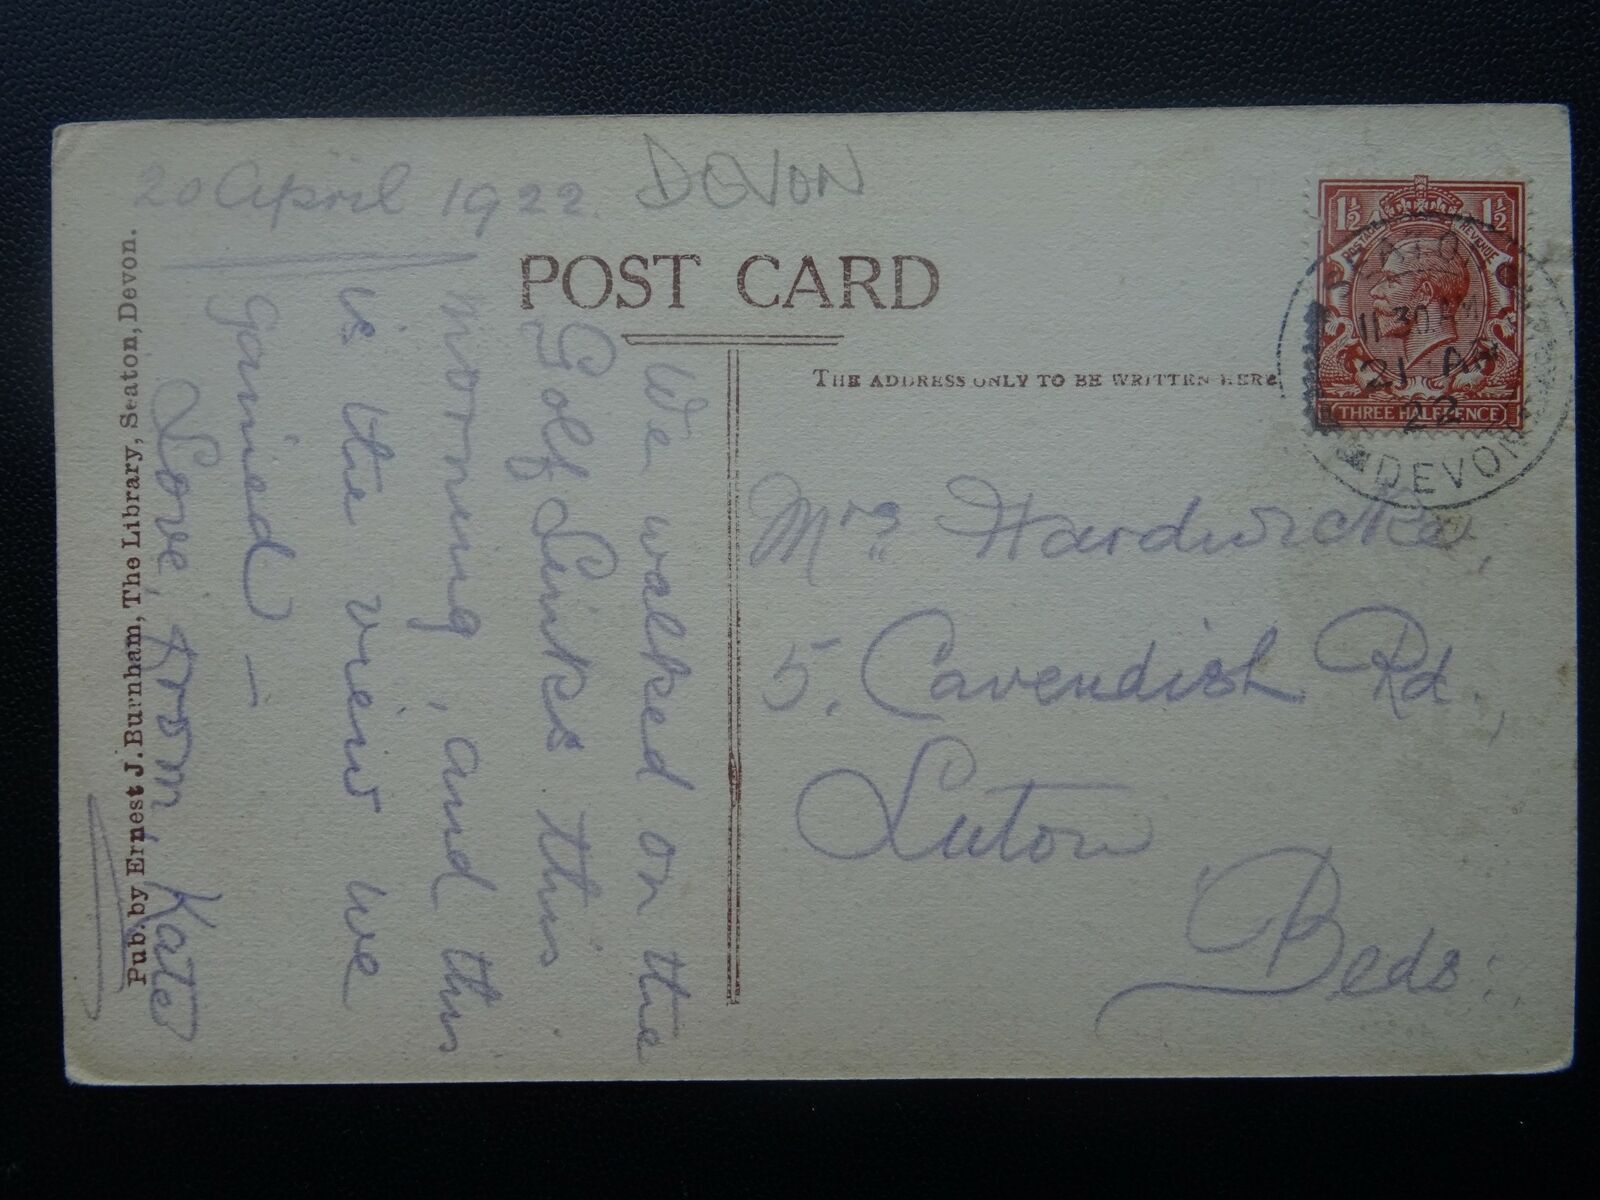 20 April 1922.
DEVON
POST CARD
THE ADDRESS ONLY TO BE WRITTEN HERE
We walked on the
Golf Links this
morning, and this
is the view we
gained —
Love, from, Kate
Pub. by Ernest J. Burnham, The Library, Seaton, Devon.
Mrs Hardwicke,
5. Cavendish Rd.,
Luton
Beds:
1½ 1½
POSTAGE REVENUE
THREE HALFPENCE
11.30 AM
21 AP
22
DEVON